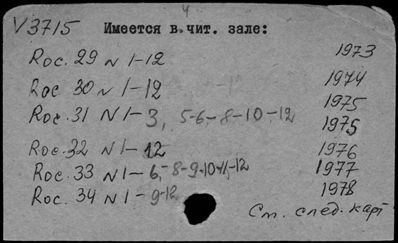 4
V3715 Имеется в чит. зале:
Roc. 29 N 1-12 1973
Roc 30 N 1-12 1974
Roc. 31 N 1-3, 5-6,-8-10-12 1975
1975
Roc. 32 N 1-12 1976
Roc. 33 N 1-6,-8-9-10-11,-12 1977
Roc. 34 N 1-9-12 1978
См. след. карт